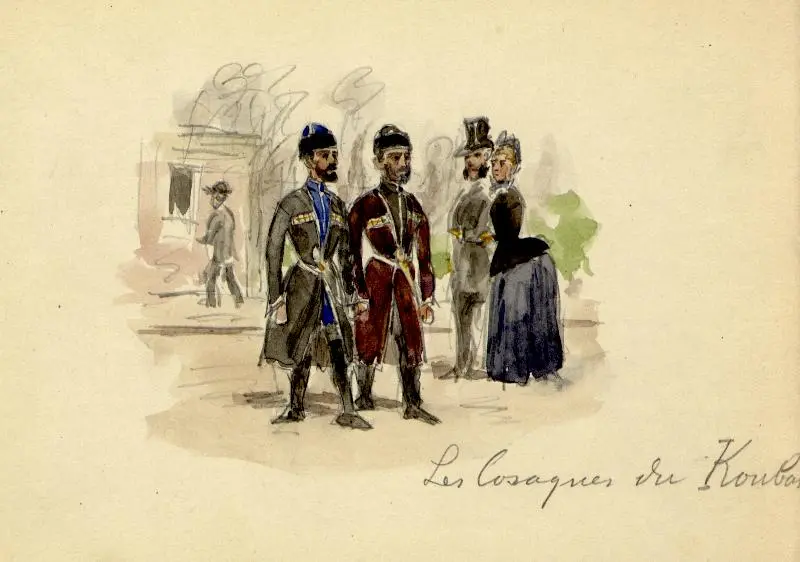 Les Cosaques du Kouba